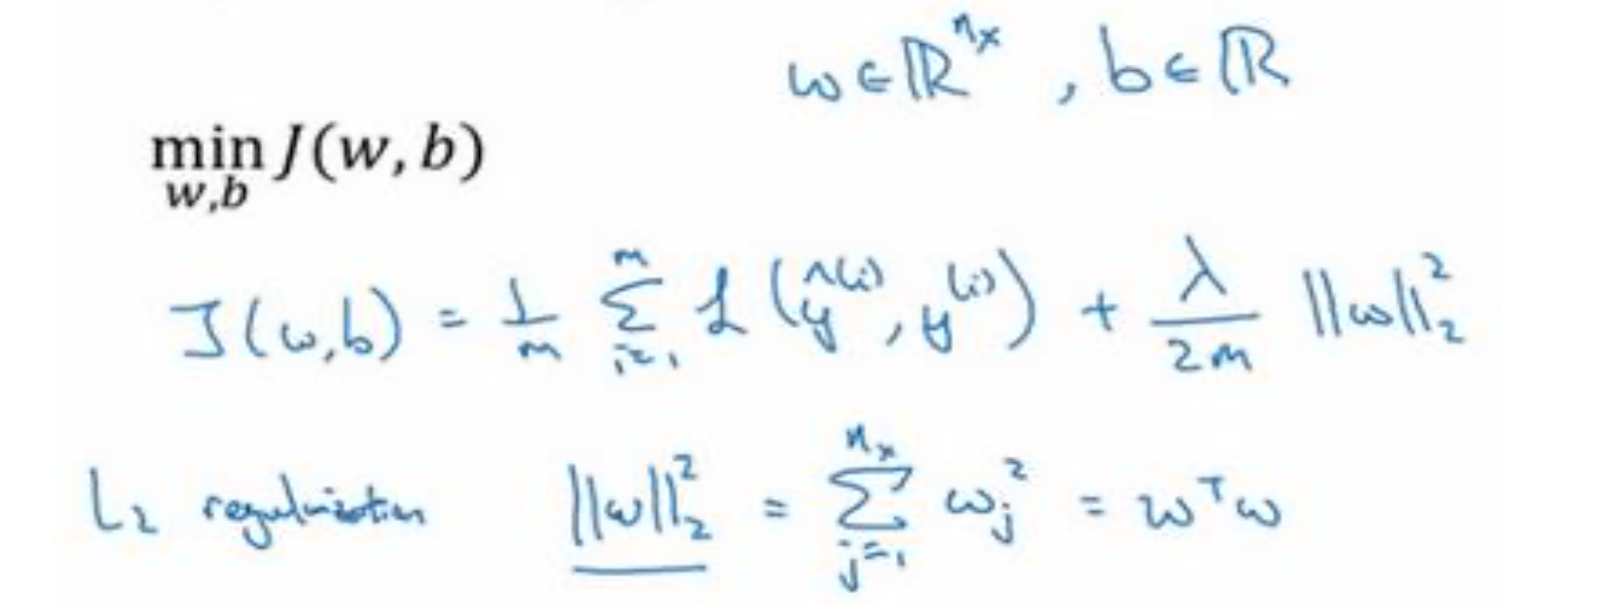 w ∈ ℝ^{n_x}, b ∈ ℝ
min_{w,b} J(w, b)
J(w,b) = 1/m ∑_{i=1}^{m} ℒ(ŷ^{(i)}, y^{(i)}) + λ/2m ||w||_2^2
L_2 regularization ||w||_2^2 = ∑_{j=1}^{n_x} w_j^2 = w^T w